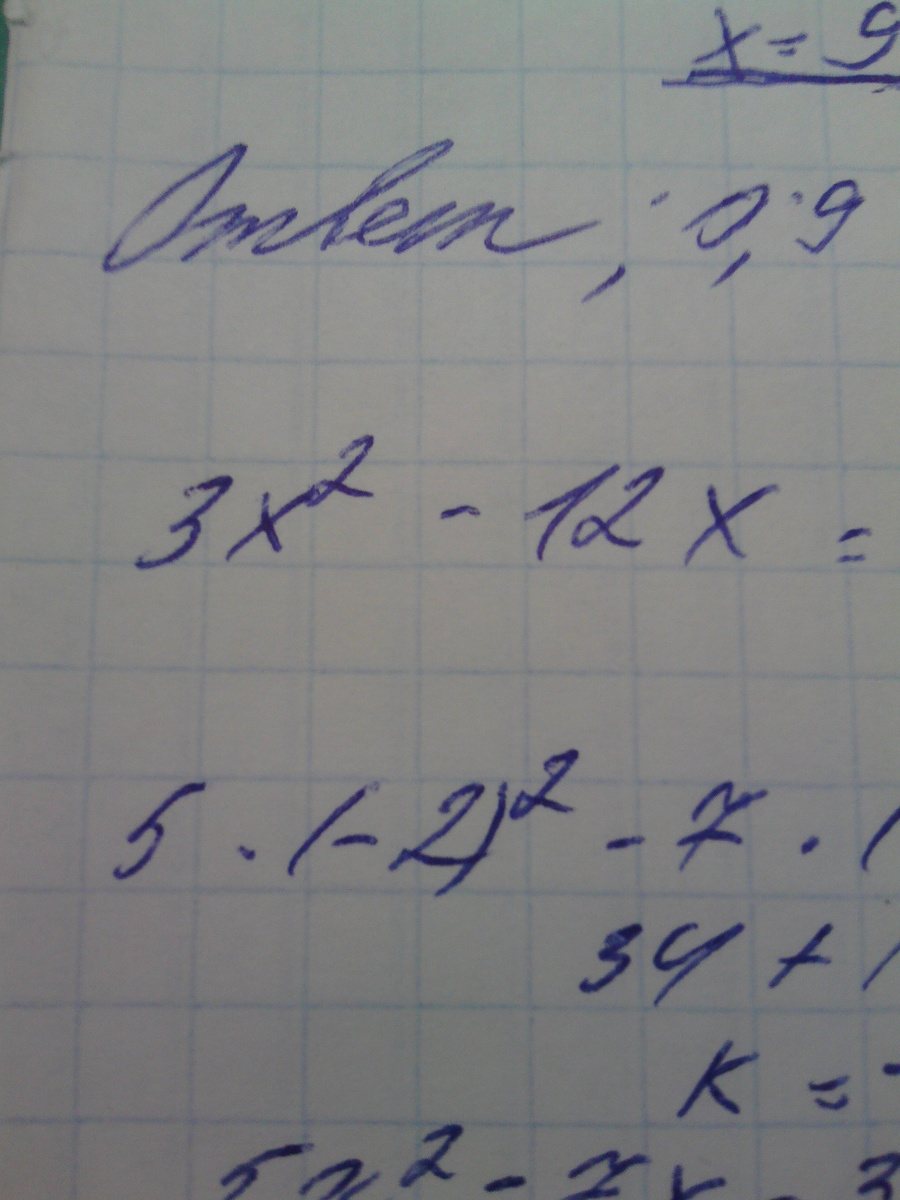 x = 9
Ответ: 0; 9
3x² - 12x =
5 · (-2)² - 7 · (
34 +
k = -
5x² - 7x - 3